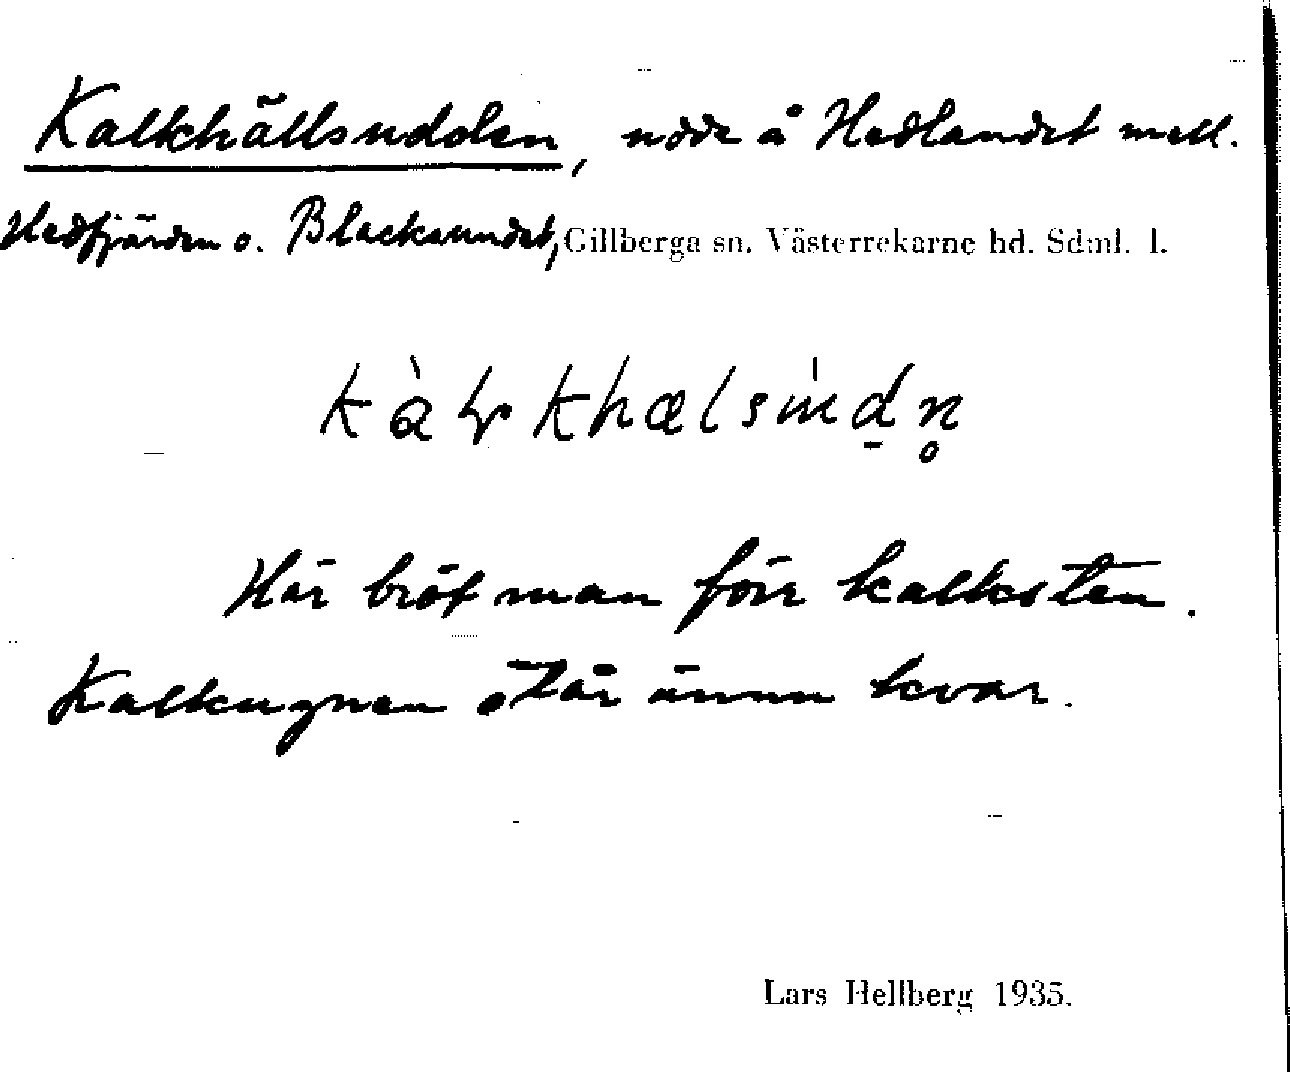 Kalkhällsudden, udde å Hedlandet mell.
Hedfjärden o. Blacksundet, Gillberga sn. Västerrekarne hd. Sdml. l.
Här bröt man förr kalksten.
Kalkugnen står ännu kvar.
Lars Hellberg 1935.